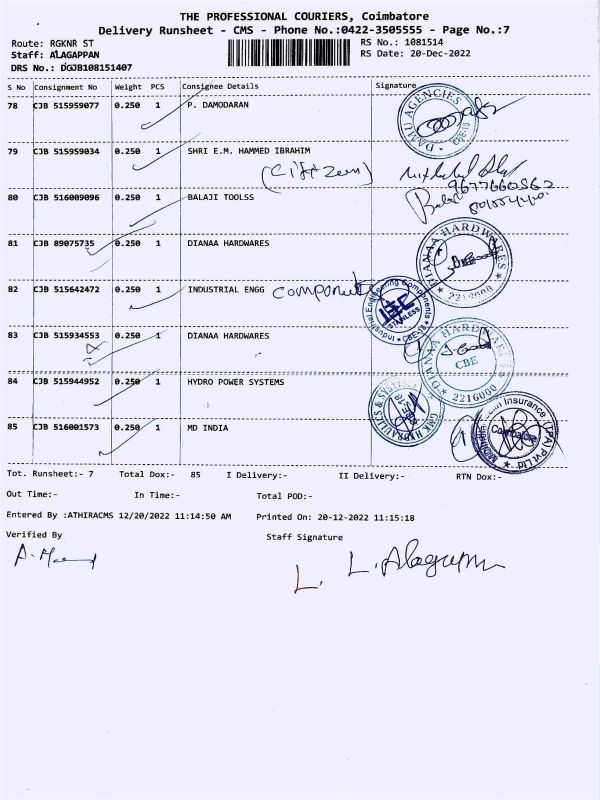 THE PROFESSIONAL COURIERS, Coimbatore
Delivery Runsheet - CMS - Phone No.:0422-3505555 - Page No.:7
Route: RGKNR ST RS No.: 1081514
Staff: ALAGAPPAN RS Date: 20-Dec-2022
DRS No.: DGJB108151407
S No Consignment No Weight PCS Consignee Details Signature
78 CJB 515959077 0.250 1 P. DAMODARAN
DAMU AGENCIES CBE-10
79 CJB 515959034 0.250 1 SHRI E.M. HAMMED IBRAHIM
(Citizen)
9677660562
80 CJB 516009096 0.250 1 BALAJI TOOLSS
Balaji
81 CJB 89075735 0.250 1 DIANAA HARDWARES
DIANAA HARDWARES 2216000
82 CJB 515642472 0.250 1 INDUSTRIAL ENGG Components
Industrial Engineering Components IEC STAINLESS CBE-18
83 CJB 515934553 0.250 1 DIANAA HARDWARES
DIANAA HARDWARES CBE 2216000
84 CJB 515944952 0.250 1 HYDRO POWER SYSTEMS
HYDRAULICS & SYSTEMS
85 CJB 516001573 0.250 1 MD INDIA
Insurance (TPA) Pvt Ltd Coimbatore
Tot. Runsheet:- 7 Total Dox:- 85 I Delivery:- II Delivery:- RTN Dox:-
Out Time:- In Time:- Total POD:-
Entered By :ATHIRACMS 12/20/2022 11:14:50 AM Printed On: 20-12-2022 11:15:18
Verified By Staff Signature
L. L. Alagappan